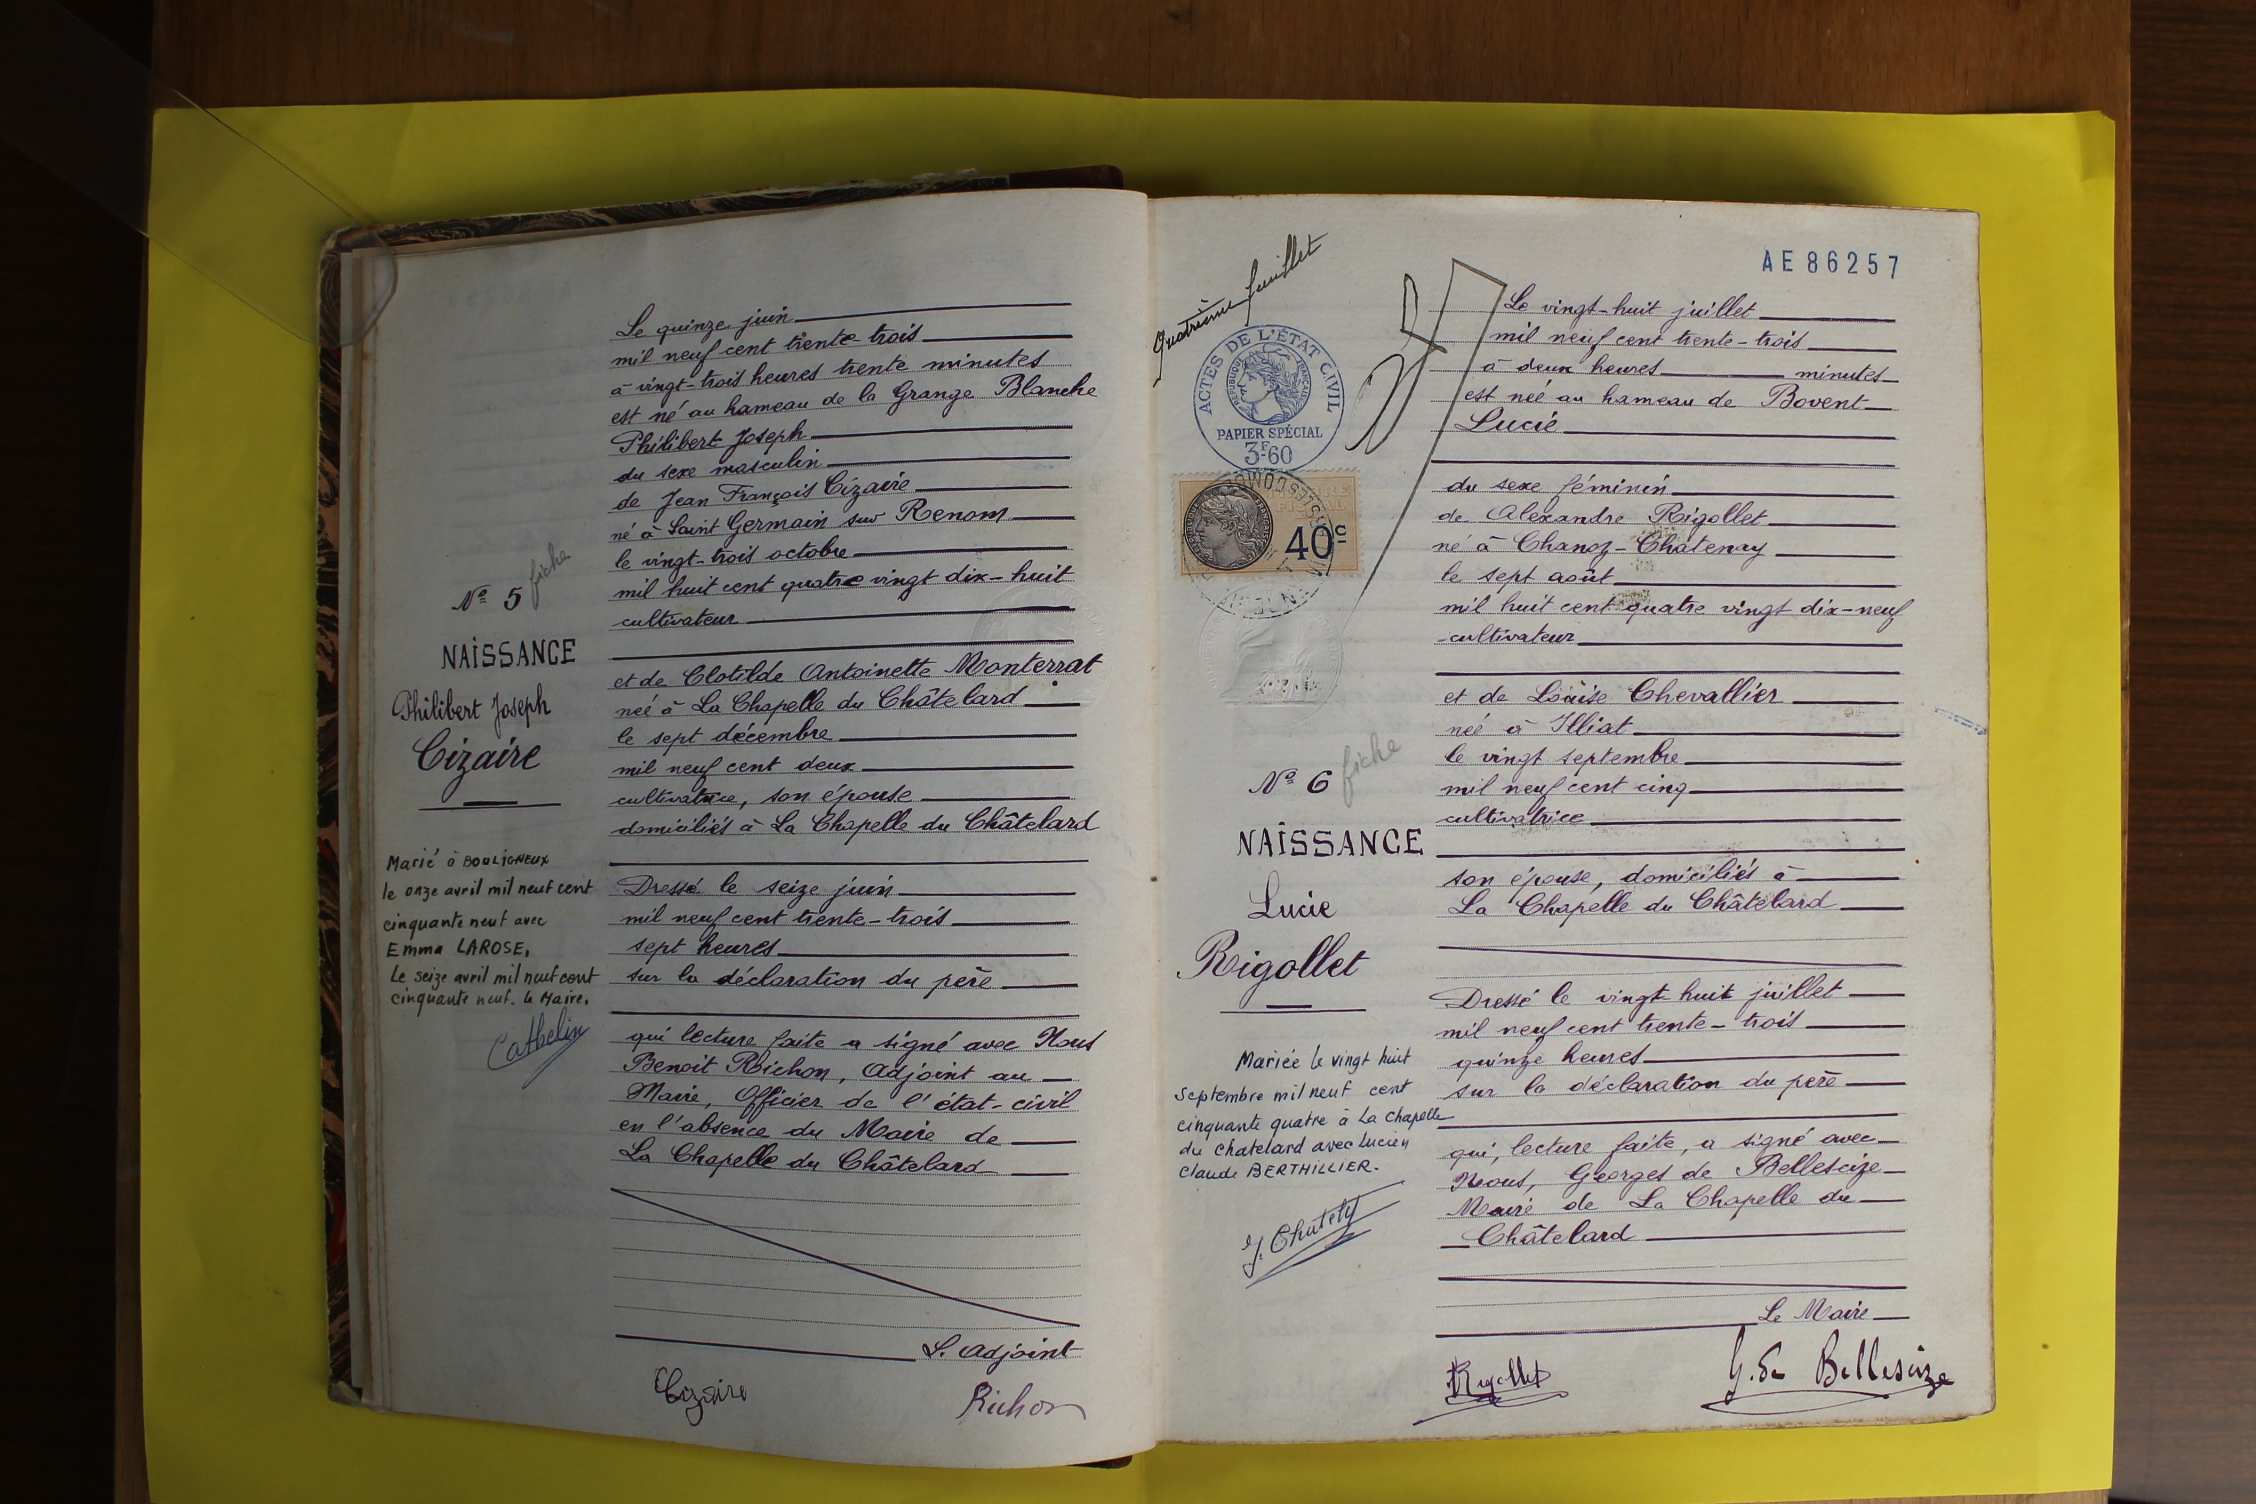 Nº 5
fiche
NAISSANCE
Philibert Joseph
Cizaire
Marié à BOULIGNEUX
le onze avril mil neuf cent
cinquante neuf avec
Emma LAROSE.
Le seize avril mil neuf cent
cinquante neuf. Le Maire.
Cathelin
Le quinze juin
mil neuf cent trente-trois
à vingt-trois heures trente minutes
est né au hameau de la Grange Blanche
Philibert Joseph
du sexe masculin
de Jean François Cizaire
né à Saint Germain sur Renom
le vingt-trois octobre
mil huit cent quatre vingt dix-huit
cultivateur
et de Clotilde Antoinette Monterrat
neé à La Chapelle du Châtelard
le sept décembre
mil neuf cent deux
cultivatrice, son épouse
domiciliés à La Chapelle du Châtelard
Dressé le seize juin
mil neuf cent trente-trois
sept heures
sur la déclaration du père
qui lecture faite a signé avec Nous
Benoit Richon, Adjoint au
Maire, Officier de l'état-civil
en l'absence du Maire de
La Chapelle du Châtelard
L. Adjoint
Cizaire
Richon
Quatrième feuillet
ACTES DE L'ÉTAT CIVIL
RÉPUBLIQUE FRANÇAISE
PAPIER SPÉCIAL
3F60
40c
AE 86257
Nº 6
fiche
NAISSANCE
Lucie
Rigollet
Mariée le vingt huit
Septembre mil neuf cent
cinquante quatre à La Chapelle
du Chatelard avec Lucien
Claude BERTHILLIER.
Le vingt-huit juillet
mil neuf cent trente-trois
à deux heures minutes
est née au hameau de Bovent
Lucie
du sexe féminin
de Alexandre Rigollet
né à Chanoz-Chatenay
le sept août
mil huit cent quatre vingt dix-neuf
cultivateur
et de Louise Chevallier
née à Illiat
le vingt septembre
mil neuf cent cinq
cultivatrice
son épouse, domiciliés à
La Chapelle du Châtelard
Dressé le vingt huit juillet
mil neuf cent trente-trois
quinze heures
sur la déclaration du père
qui, lecture faite, a signé avec
Nous, Georges de Bellescize
Maire de La Chapelle du
Châtelard
Le Maire
Rigollet
G. de Bellescize